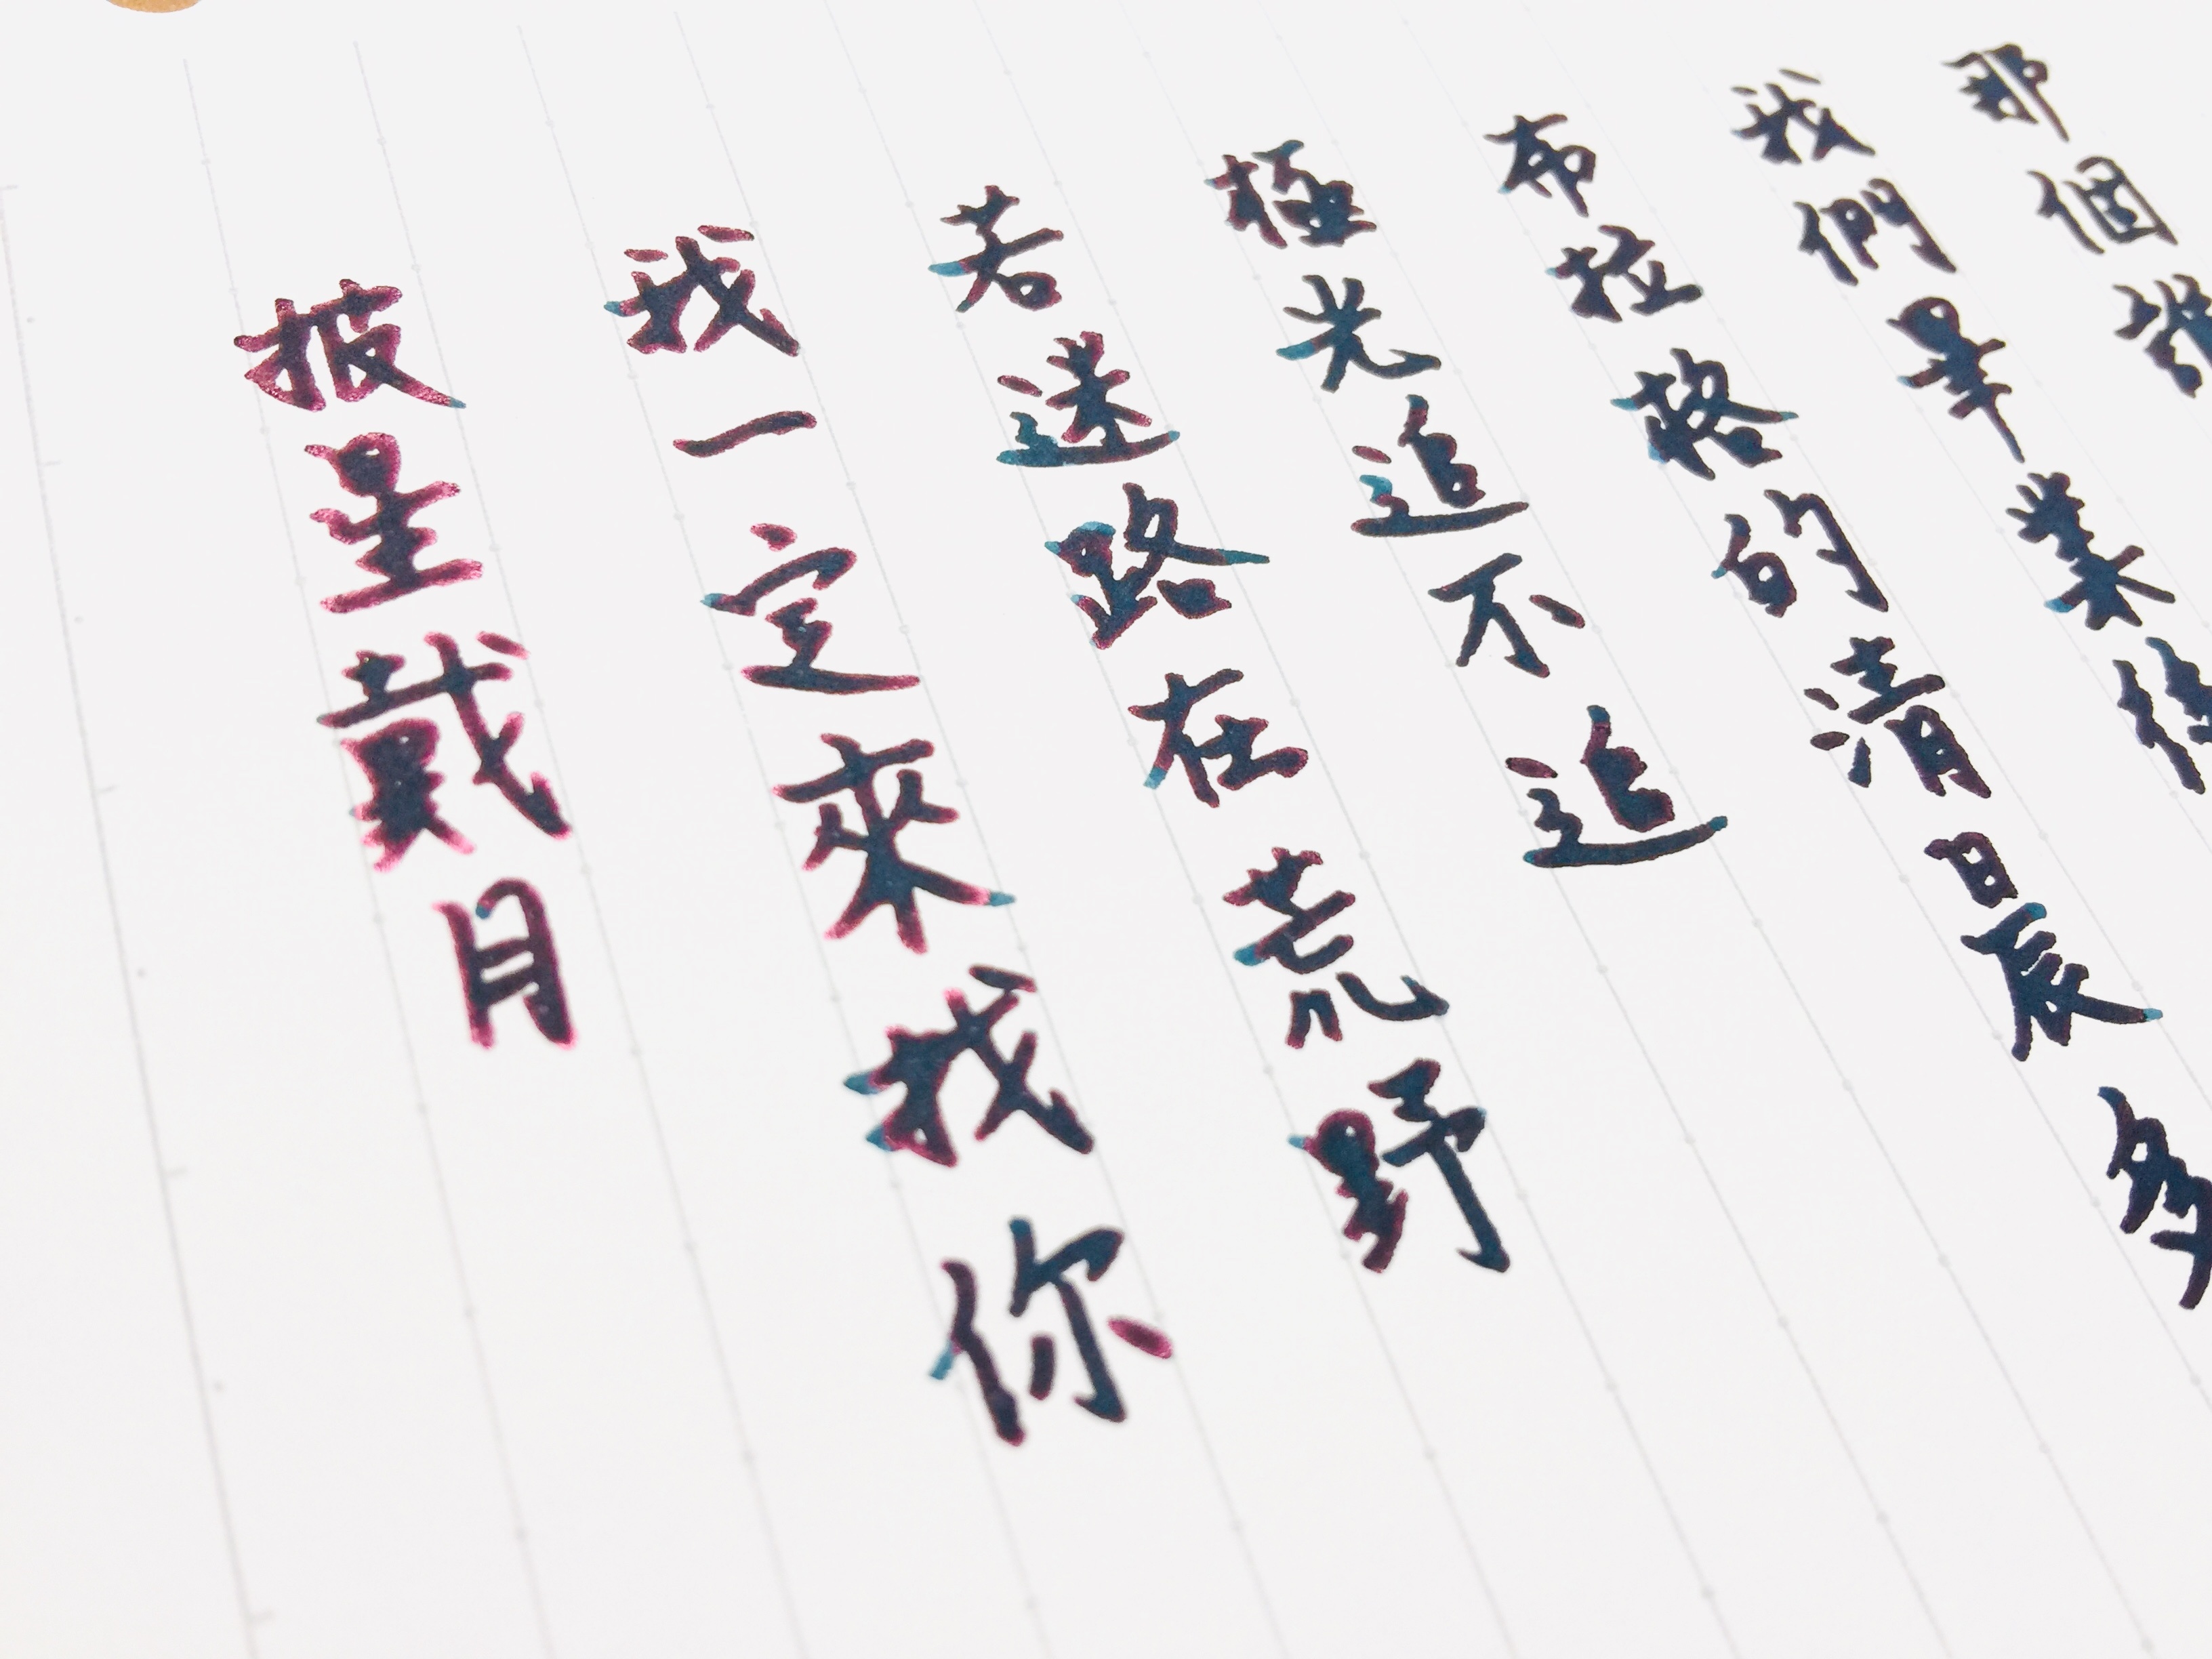 那個
我們畢業後
布拉格的清晨多
極光追不追
若迷路在荒野
我一定來找你
披星戴月